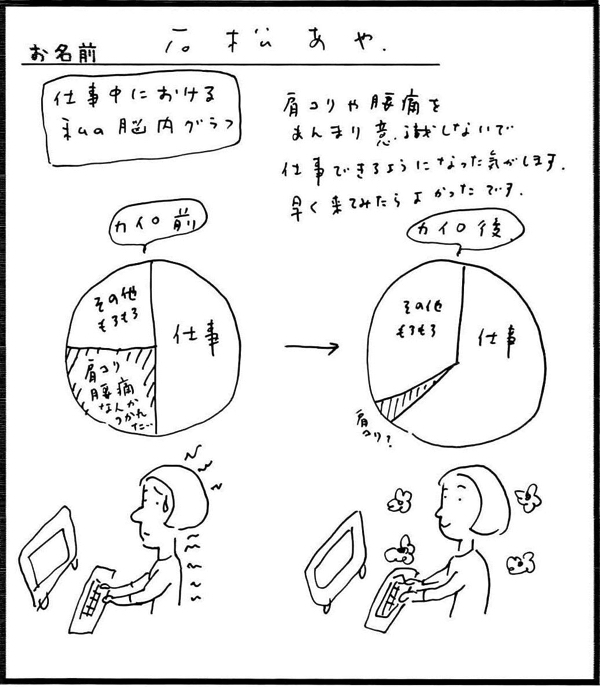 お名前 石松あや.
仕事中における
私の脳内グラフ
肩コリや腰痛を
あんまり意識しないで
仕事できるようになった気がします.
早く来てみたらよかったです.
カイロ前
その他
もろもろ
仕事
肩コリ
腰痛
なんか
つかれ
た…
カイロ後
その他
もろもろ
仕事
肩
コリ?